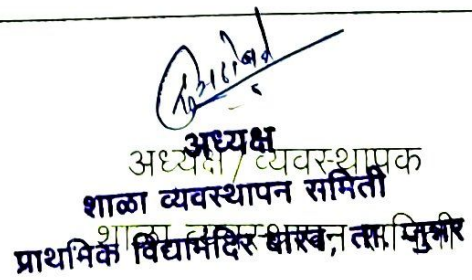 अध्यक्ष
अध्यक्ष / व्यवस्थापक
शाळा व्यवस्थापन समिती
शाळा व्यवस्थापन समिती
प्राथमिक विद्यामंदिर ता.